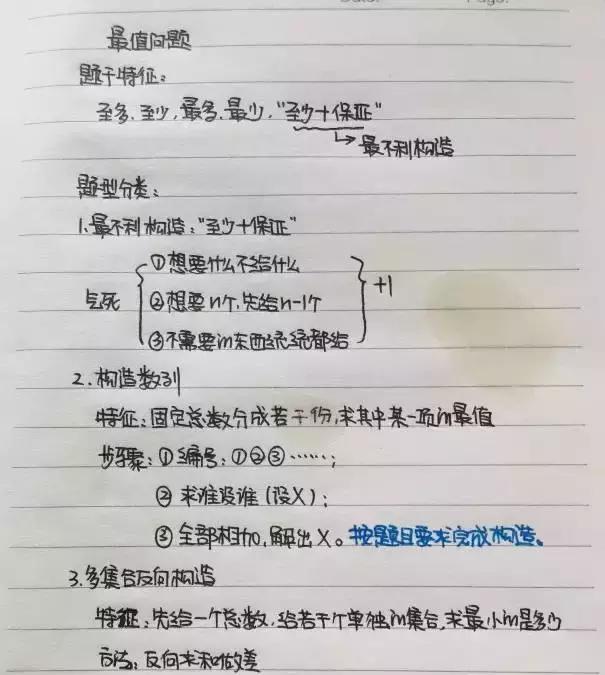 Page:
最值问题
题干特征：
至多，至少，最多，最少，“至少+保证”
↳最不利构造
题型分类：
1.最不利构造：“至少+保证”
①想要什么不给什么
气死 ②想要n个，先给n-1个 +1
③不需要的东西统统都给
2.构造数列
特征：固定总数分成若干份，求其中某一项的最值
步骤：①编号：①②③……；
②求谁设谁（设X）；
③全部相加，解出X。按题目要求完成构造。
3.多集合反向构造
特征：先给一个总数，给若干个单独的集合，求最小的是多少
方法：反向求和做差